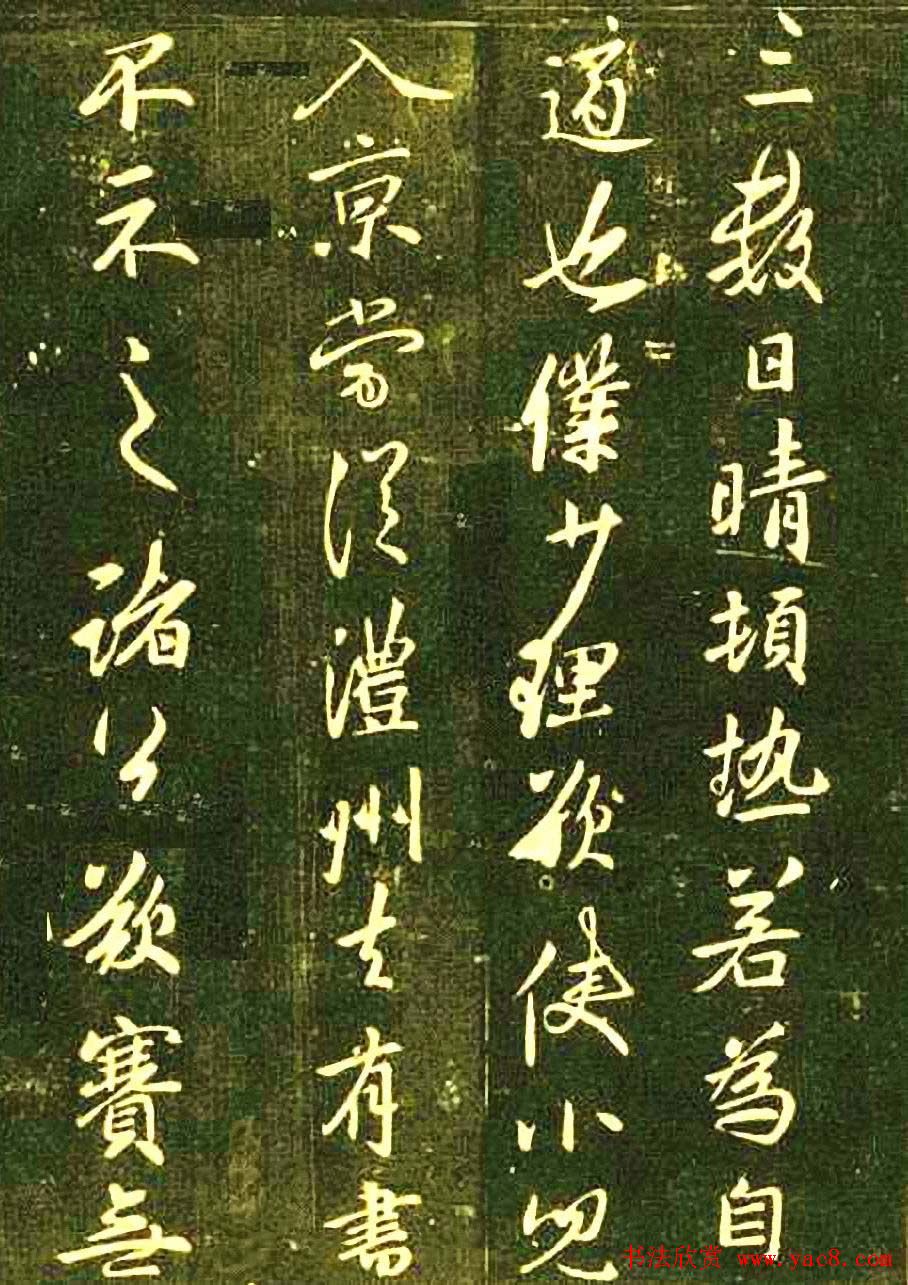 三數日晴頓热若為自
適也僕少理欲使小兒
入京當從澧州去有書
不示之諸公欲賽無
书法欣赏 www.yac8.com